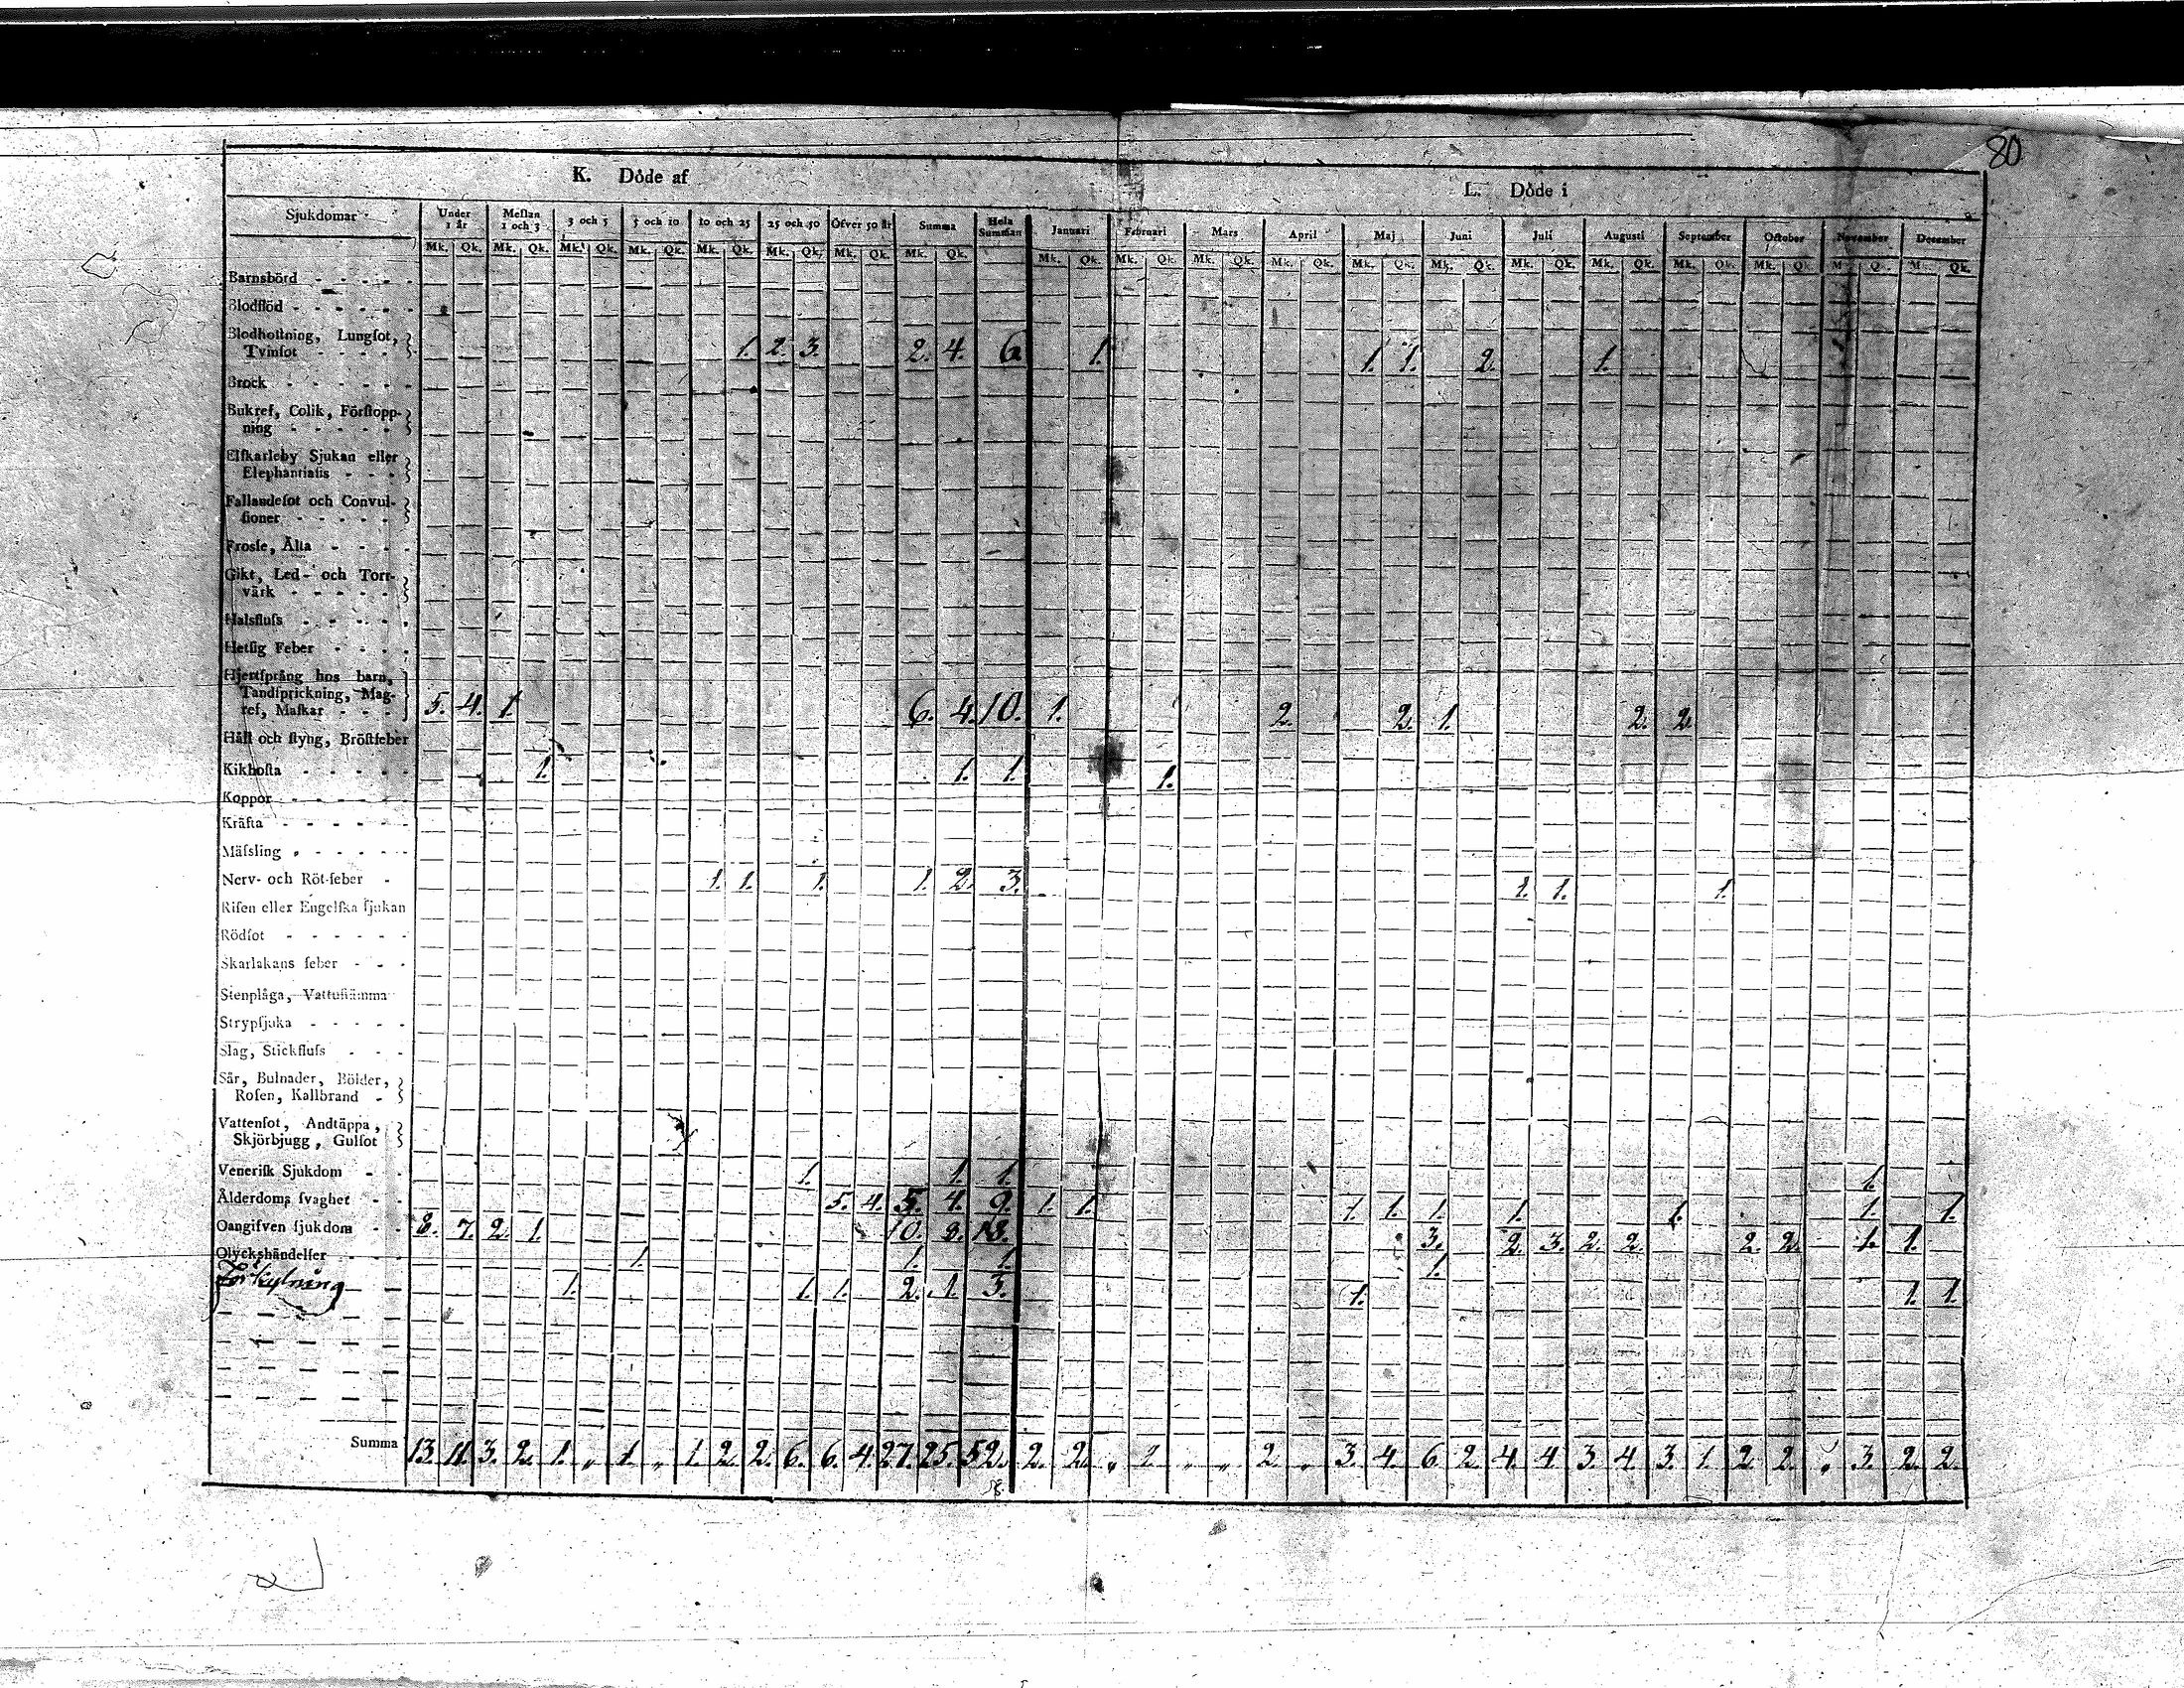 80
K. Döde af L. Döde i
Sjukdomar Under 1 år Meſlan 1 och 3 3 och 5 5 och 10 10 och 25 25 och 50 Öfver 50 år Summa Hela Summan Januari Februari Mars April Maj Juni Juli Auguſti September October November December
Mk. Qk. Mk. Qk. Mk. Qk. Mk. Qk. Mk. Qk. Mk. Qk. Mk. Qk. Mk. Qk. Mk. Qk. Mk. Qk. Mk. Qk. Mk. Qk. Mk. Qk. Mk. Qk. Mk. Qk. Mk. Qk. Mk. Qk. Mk. Qk. Mk. Qk. Mk. Qk.
Barnsbörd - - - - -
Blodflöd - - - - - -
Blodhoſtning, Lungſot,
Tvinſot - - - - 1. 2. 3. 2. 4. 6. 1. 1. 1. 2. 1.
Brock - - - - - -
Bukref, Colik, Förſtopp-
ning - - - - -
Elfkarleby Sjukan eller
Elephantiaſis - - -
Fallandeſot och Convul-
ſioner - - - - -
Frosſe, Älta - - - -
Gikt, Led- och Torr-
värk - - - - -
Halsfluſs - - - - -
Hetſig Feber - - - -
Hjertſprång hos barn,
Tandſprickning, Mag-
ref, Maſkar - - - 5. 4. 1. 6. 4. 10. 1. 2. 2. 1. 2. 2.
Håll och ſtyng, Bröſtfeber
Kikhoſta - - - - - 1. 1. 1. 1.
Koppor - - - - -
Kräfta - - - - - -
Mäſsling - - - - -
Nerv- och Röt-feber - 1. 1. 1. 1. 2. 3. 1. 1. 1.
Riſen eller Engelſka ſjukan
Rödſot - - - - - -
Skarlakans feber - - -
Stenplåga, Vattuſtämma
Strypſjuka - - - - -
Slag, Stickfluſs - - -
Sår, Bulnader, Bölder,
Roſen, Kallbrand -
Vattenſot, Andtäppa,
Skjörbjugg, Gulſot
Veneriſk Sjukdom - - 1. 1. 1. 1.
Ålderdoms ſvaghet - - 5. 4. 5. 4. 9. 1. 1. 1. 1. 1. 1. 1. 1. 1.
Oangifven ſjukdom - - 8. 7. 2. 1. 10. 8. 18. 3. 2. 3. 2. 2. 2. 2. 1. 1.
Olyckshändelſer - - - 1. 1. 1. 1.
Förkylning 1. 1. 1. 2. 1. 3. 1. 1. 1.
Summa 13. 11. 3. 2. 1. „ 1. „ 1. 2. 2. 6. 6. 4. 27. 25. 52. 2. 2. „ 1. „ „ 2. „ 3. 4. 6. 2. 4. 4. 3. 4. 3. 1. 2. 2. „ 3. 2. 2.